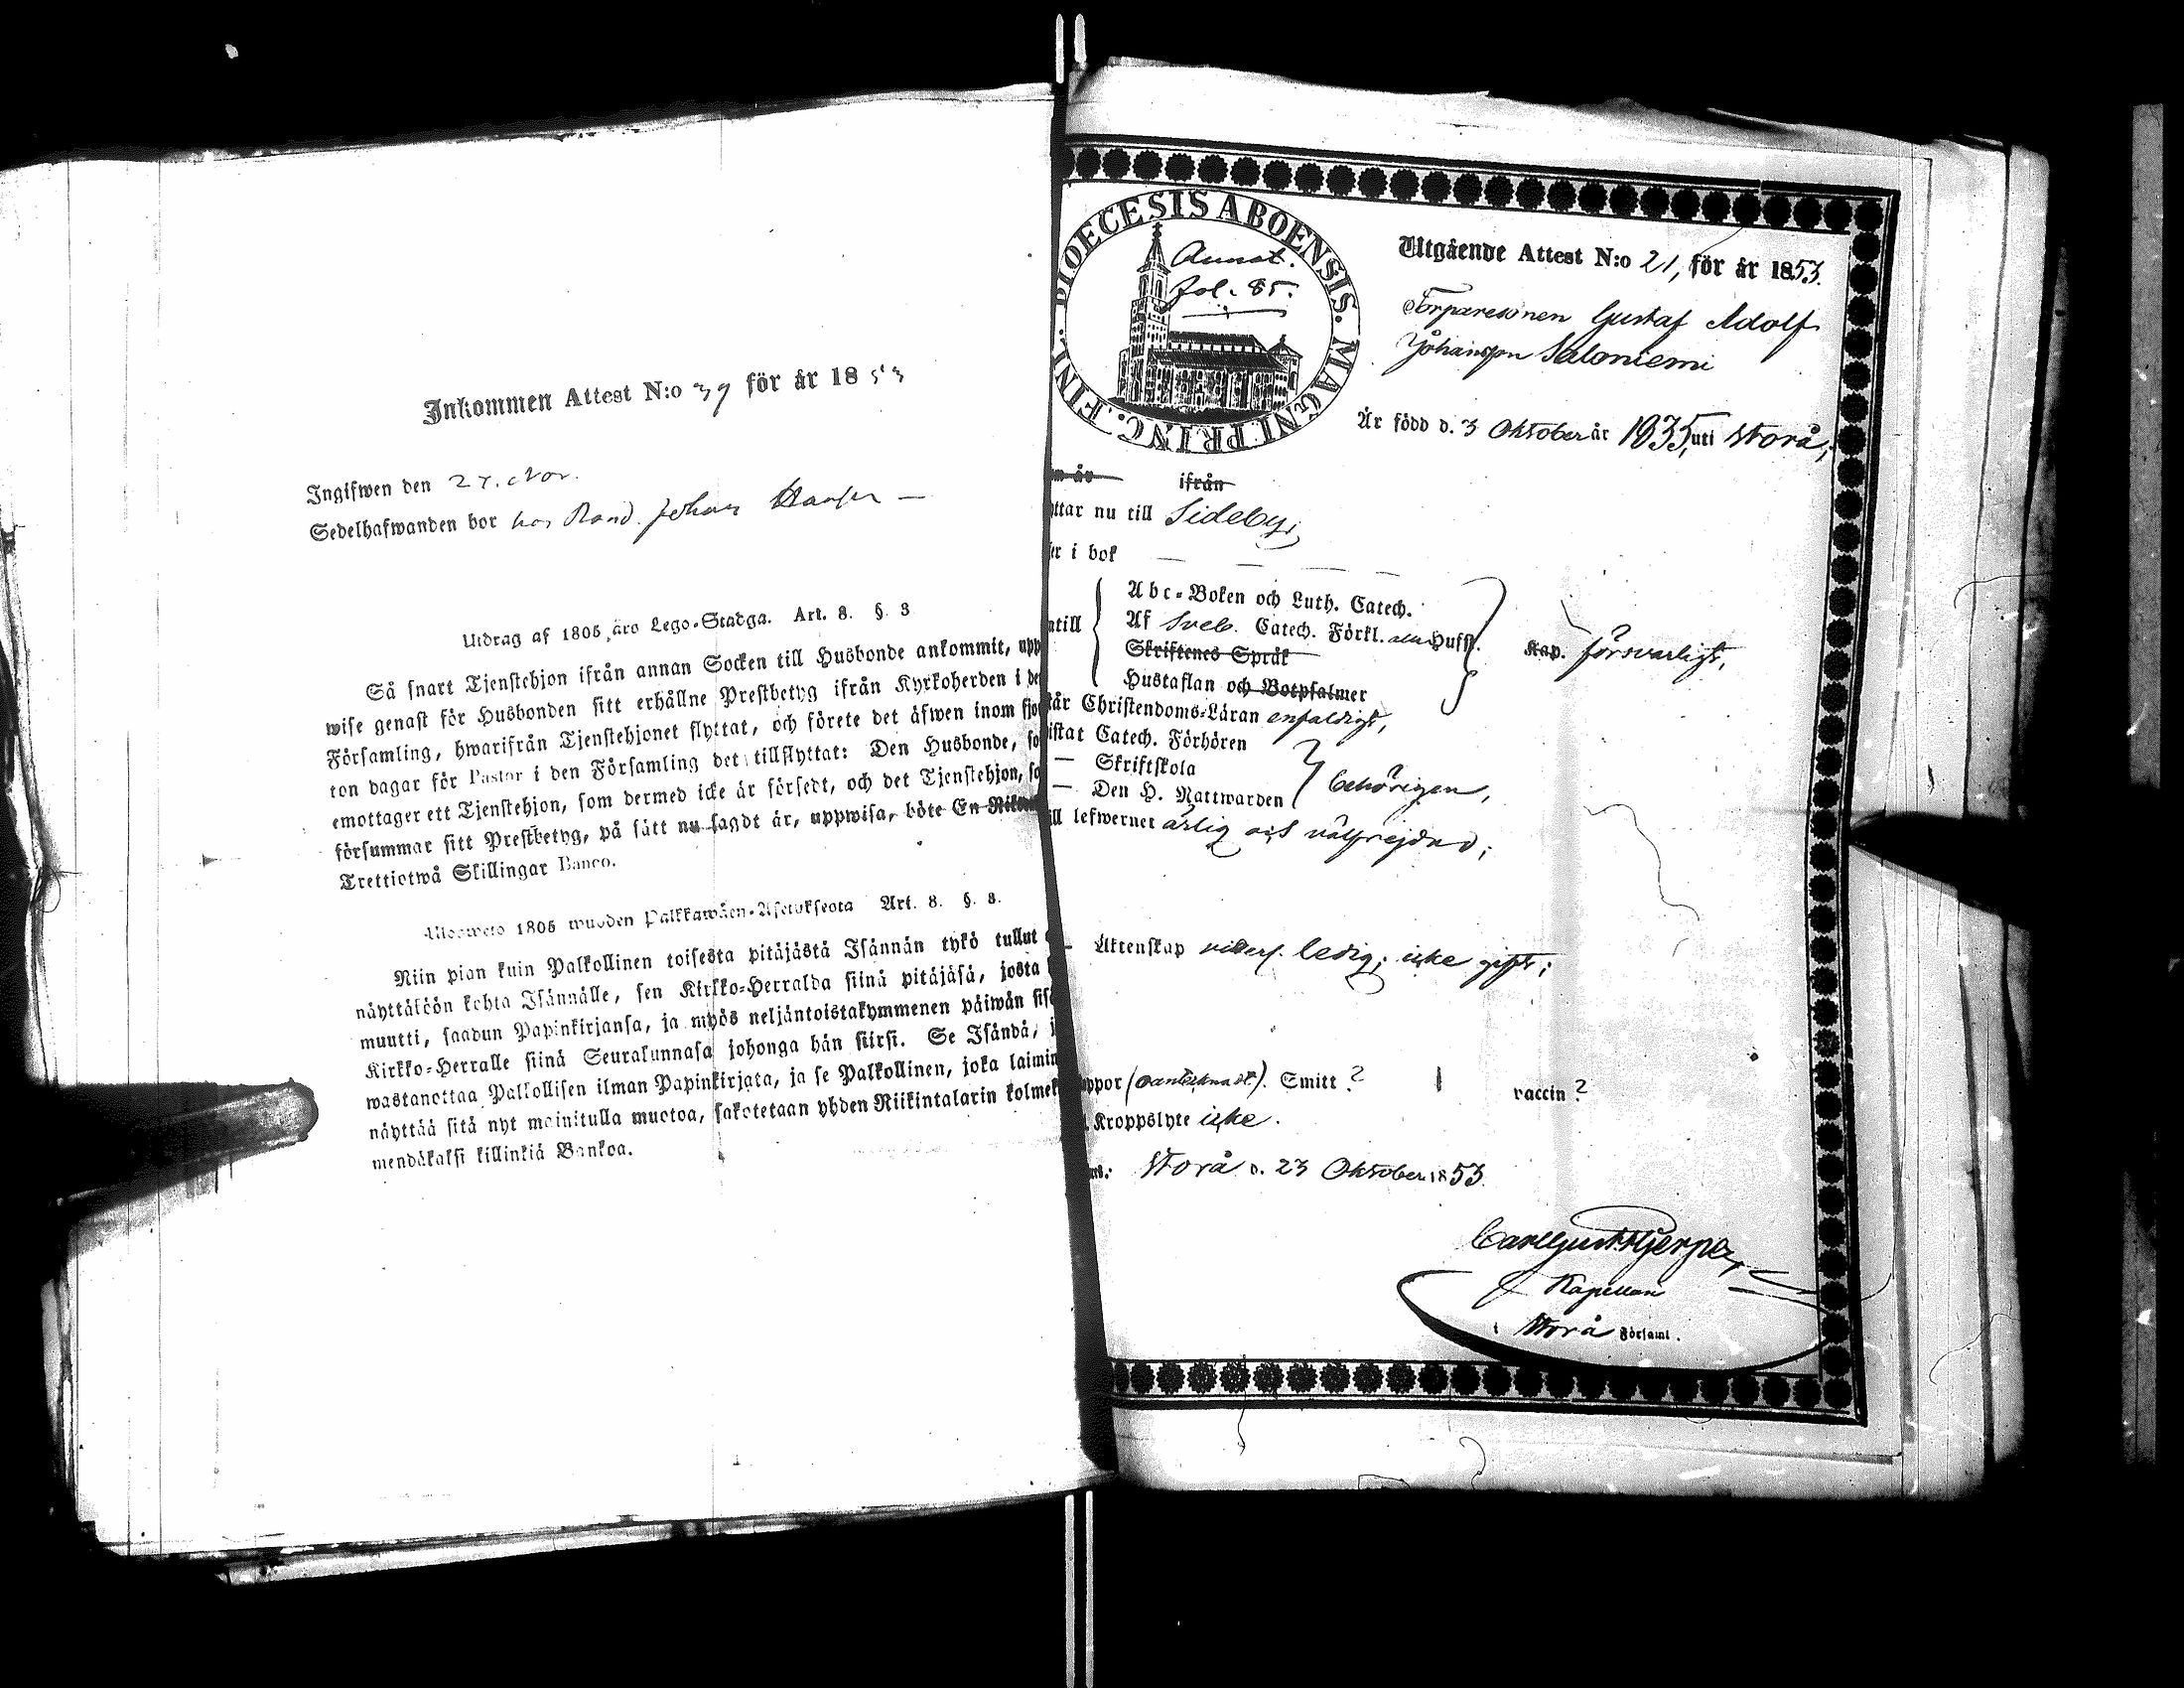 Inkommen Attest N:o 39 för år 1853
Ingifwen den 27. Nov.
Sedelhafwanden bor hos Bond. Johan
Utdrag af 1805 års Lego-Stadga. Art. 8. §. 3
Så snart Tjenstehjon ifrån annan Socken till Husbonde ankommit, upp
wise genast för Husbonden sitt erhållne Prestbetyg ifrån Kyrkoherden i de
Församling, hwarifrån Tjenstehjonet flyttat, och förete det äfwen inom fjor
ton dagar för Pastor i den Församling det tillflyttat: Den Husbonde, so
emottager ett Tjenstehjon, som dermed icke är försedt, och det Tjenstehjon, so
försummar sitt Prestbetyg, på sätt nu sagdt är, uppwisa, böte En Riks
Trettiotwå Skillingar Banco.
Uloswето 1805 wuoden Palkkawäen-Asetuksesta Art. 8. §. 3.
Niin pian kuin Palkollinen toisesta pitäjästä Isännän tykö tullut
näyttäköön kohta Isännälle, sen Kirkko-Herralda siinä pitäjäsä, josta
muutti, saadun Papinkirjansa, ja myös neljäntoistakymmenen päiwän sisä
Kirkko-Herralle siinä Seurakunnasa johonga hän siirsi. Se Isändä, j
wastanottaa Palkollisen ilman Papinkirjata, ja se Palkollinen, joka laimin
näyttää sitä nyt mainitulla muotoa, sakotetaan yhden Riikintalarin kolmek
mendäkaksi killinkiä Bankoa.
DIOECESIS ABOENSIS. MAGNI PRINC. FINL.
Annot.
fol. 85.
Utgående Attest N:o 21, för år 1853.
Torparesonen Gustaf Adolf
Johansson Saloniemi
Är född d. 3 Oktober år 1835, uti Storå,
m år ifrån
yttar nu till Sideby,
ser i bok
ntill
Abc-Boken och Luth. Catech.
Af Sveb. Catech. Förkl. Husf.
Skriftenes Språk
Hustaflan och Botpsalmer
Kap. försvarligt,
tår Christendoms-Läran enfaldigt,
istat Catech. Förhören
— Skriftskola
— Den H. Nattwarden
behörigen,
ill lefwernet ärlig och välfrejdad;
— Äktenskap vidare ledig; icke gift;
ppor (vantecknadt). Smitt ? vaccin ?
Kroppslyte icke.
Storå d. 23 Oktober 1853.
Carl Gust. Hjerpe,
Kapellan
i Storå Församl.